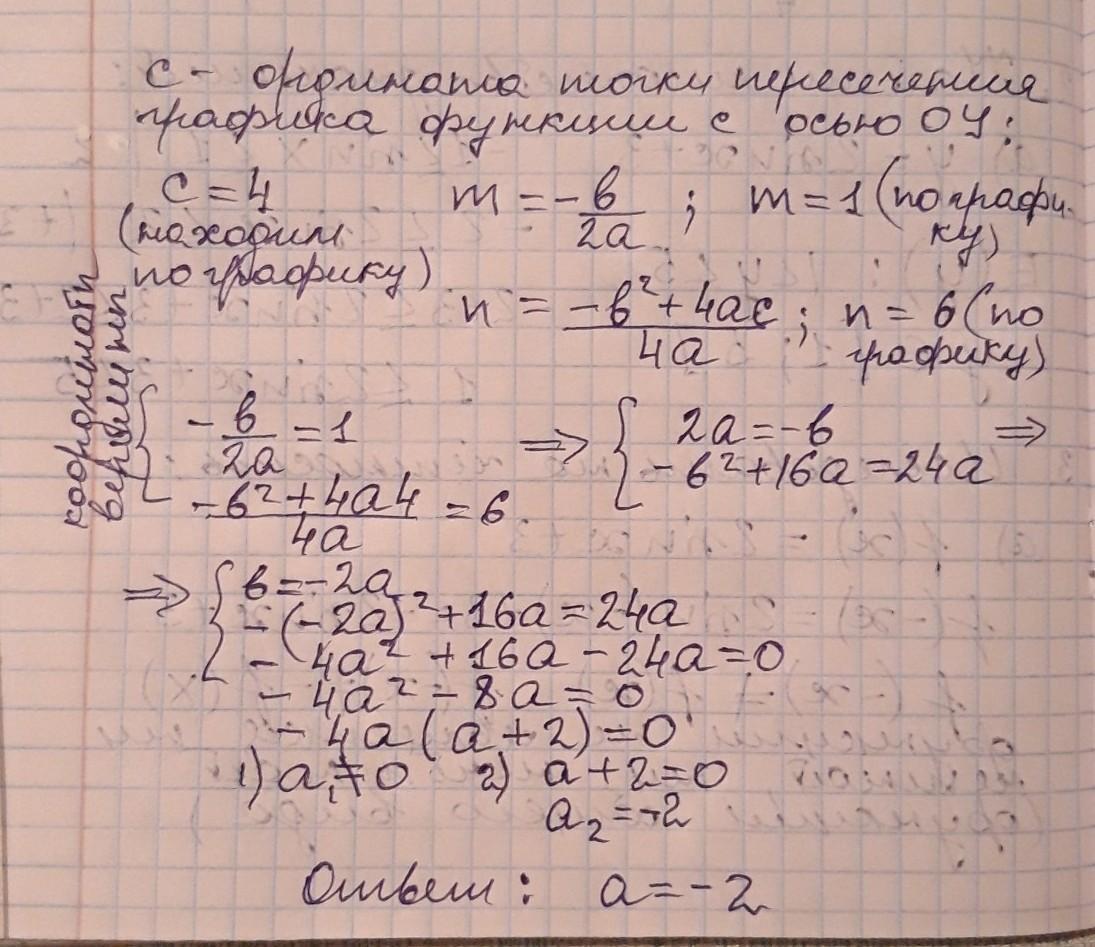 с - ордината точки пересечения
графика функции с осью ОУ:
с = 4
(находим
по графику)
m = -в/2а ; m = 1 (по графи-
ку)
n = (-в² + 4ас)/4а ; n = 6 (по
графику)
координаты
вершины
{ -в/2а = 1
(-в² + 4а4)/4а = 6
⇒ { 2а = -в
-в² + 16а = 24а ⇒
⇒ { в = -2а
-(-2а)² + 16а = 24а
- 4а² + 16а - 24а = 0
- 4а² - 8а = 0
- 4а (а + 2) = 0
1) а₁ ≠ 0 2) а + 2 = 0
а₂ = -2
Ответ: а = -2